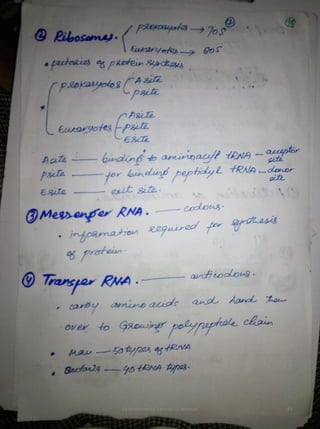 ② Ribosomes. { prokaryotes → 70S
Eukaryotes → 80S
• factories of protein synthesis
* { prokaryotes { A site
P site
Eukaryotes { A site
P site
E site
A site — binding to aminoacyl tRNA — acceptor site
P site — for binding peptidyl tRNA — donor site
E site — exit site.
③ Messenger RNA. — codons.
• information required for synthesis
of protein.
④ Transfer RNA. — anticodons.
• carry amino acids and hand them
over to Growing polypeptide chain
• Man — 50 types of tRNA
• Bacteria — 40 tRNA types.